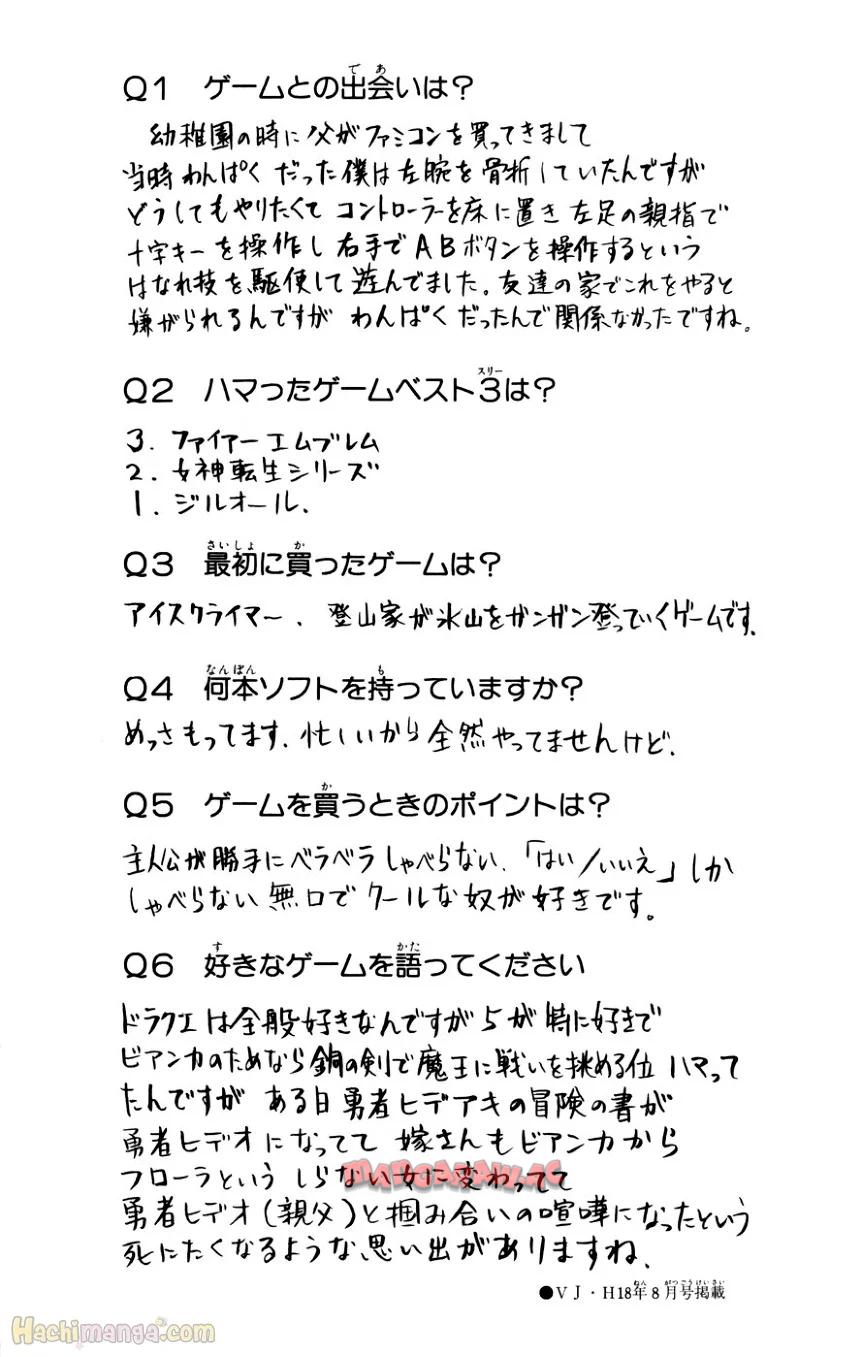 Q1 ゲームとの出会いは？
幼稚園の時に父がファミコンを買ってきまして
当時わんぱくだった僕は左腕を骨折していたんですが
どうしてもやりたくて コントローラーを床に置き左足の親指で
十字キーを操作し右手でABボタンを操作するという
はなれ技を駆使して遊んでました。友達の家でこれをやると
嫌がられるんですが わんぱくだったんで関係なかったですね。
Q2 ハマったゲームベスト3は？
3. ファイアーエムブレム
2. 女神転生シリーズ
1. ジルオール.
Q3 最初に買ったゲームは？
アイスクライマー. 登山家が氷山をガンガン登っていくゲームです.
Q4 何本ソフトを持っていますか？
めっさもってます. 忙しいから全然やってませんけど.
Q5 ゲームを買うときのポイントは？
主人公が勝手にベラベラしゃべらない.「はい/いいえ」しか
しゃべらない無口でクールな奴が好きです。
Q6 好きなゲームを語ってください
ドラクエは全般好きなんですが5が特に好きで
ビアンカのためなら銅の剣で魔王に戦いを挑める位ハマって
たんですが ある日勇者ヒデアキの冒険の書が
勇者ヒデオになってて 嫁さんもビアンカから
フローラという しらない女に変わってて
勇者ヒデオ(親父)と掴み合いの喧嘩になったという
死にたくなるような思い出がありますね.
●VJ・H18年8月号掲載
Hachimanga.com